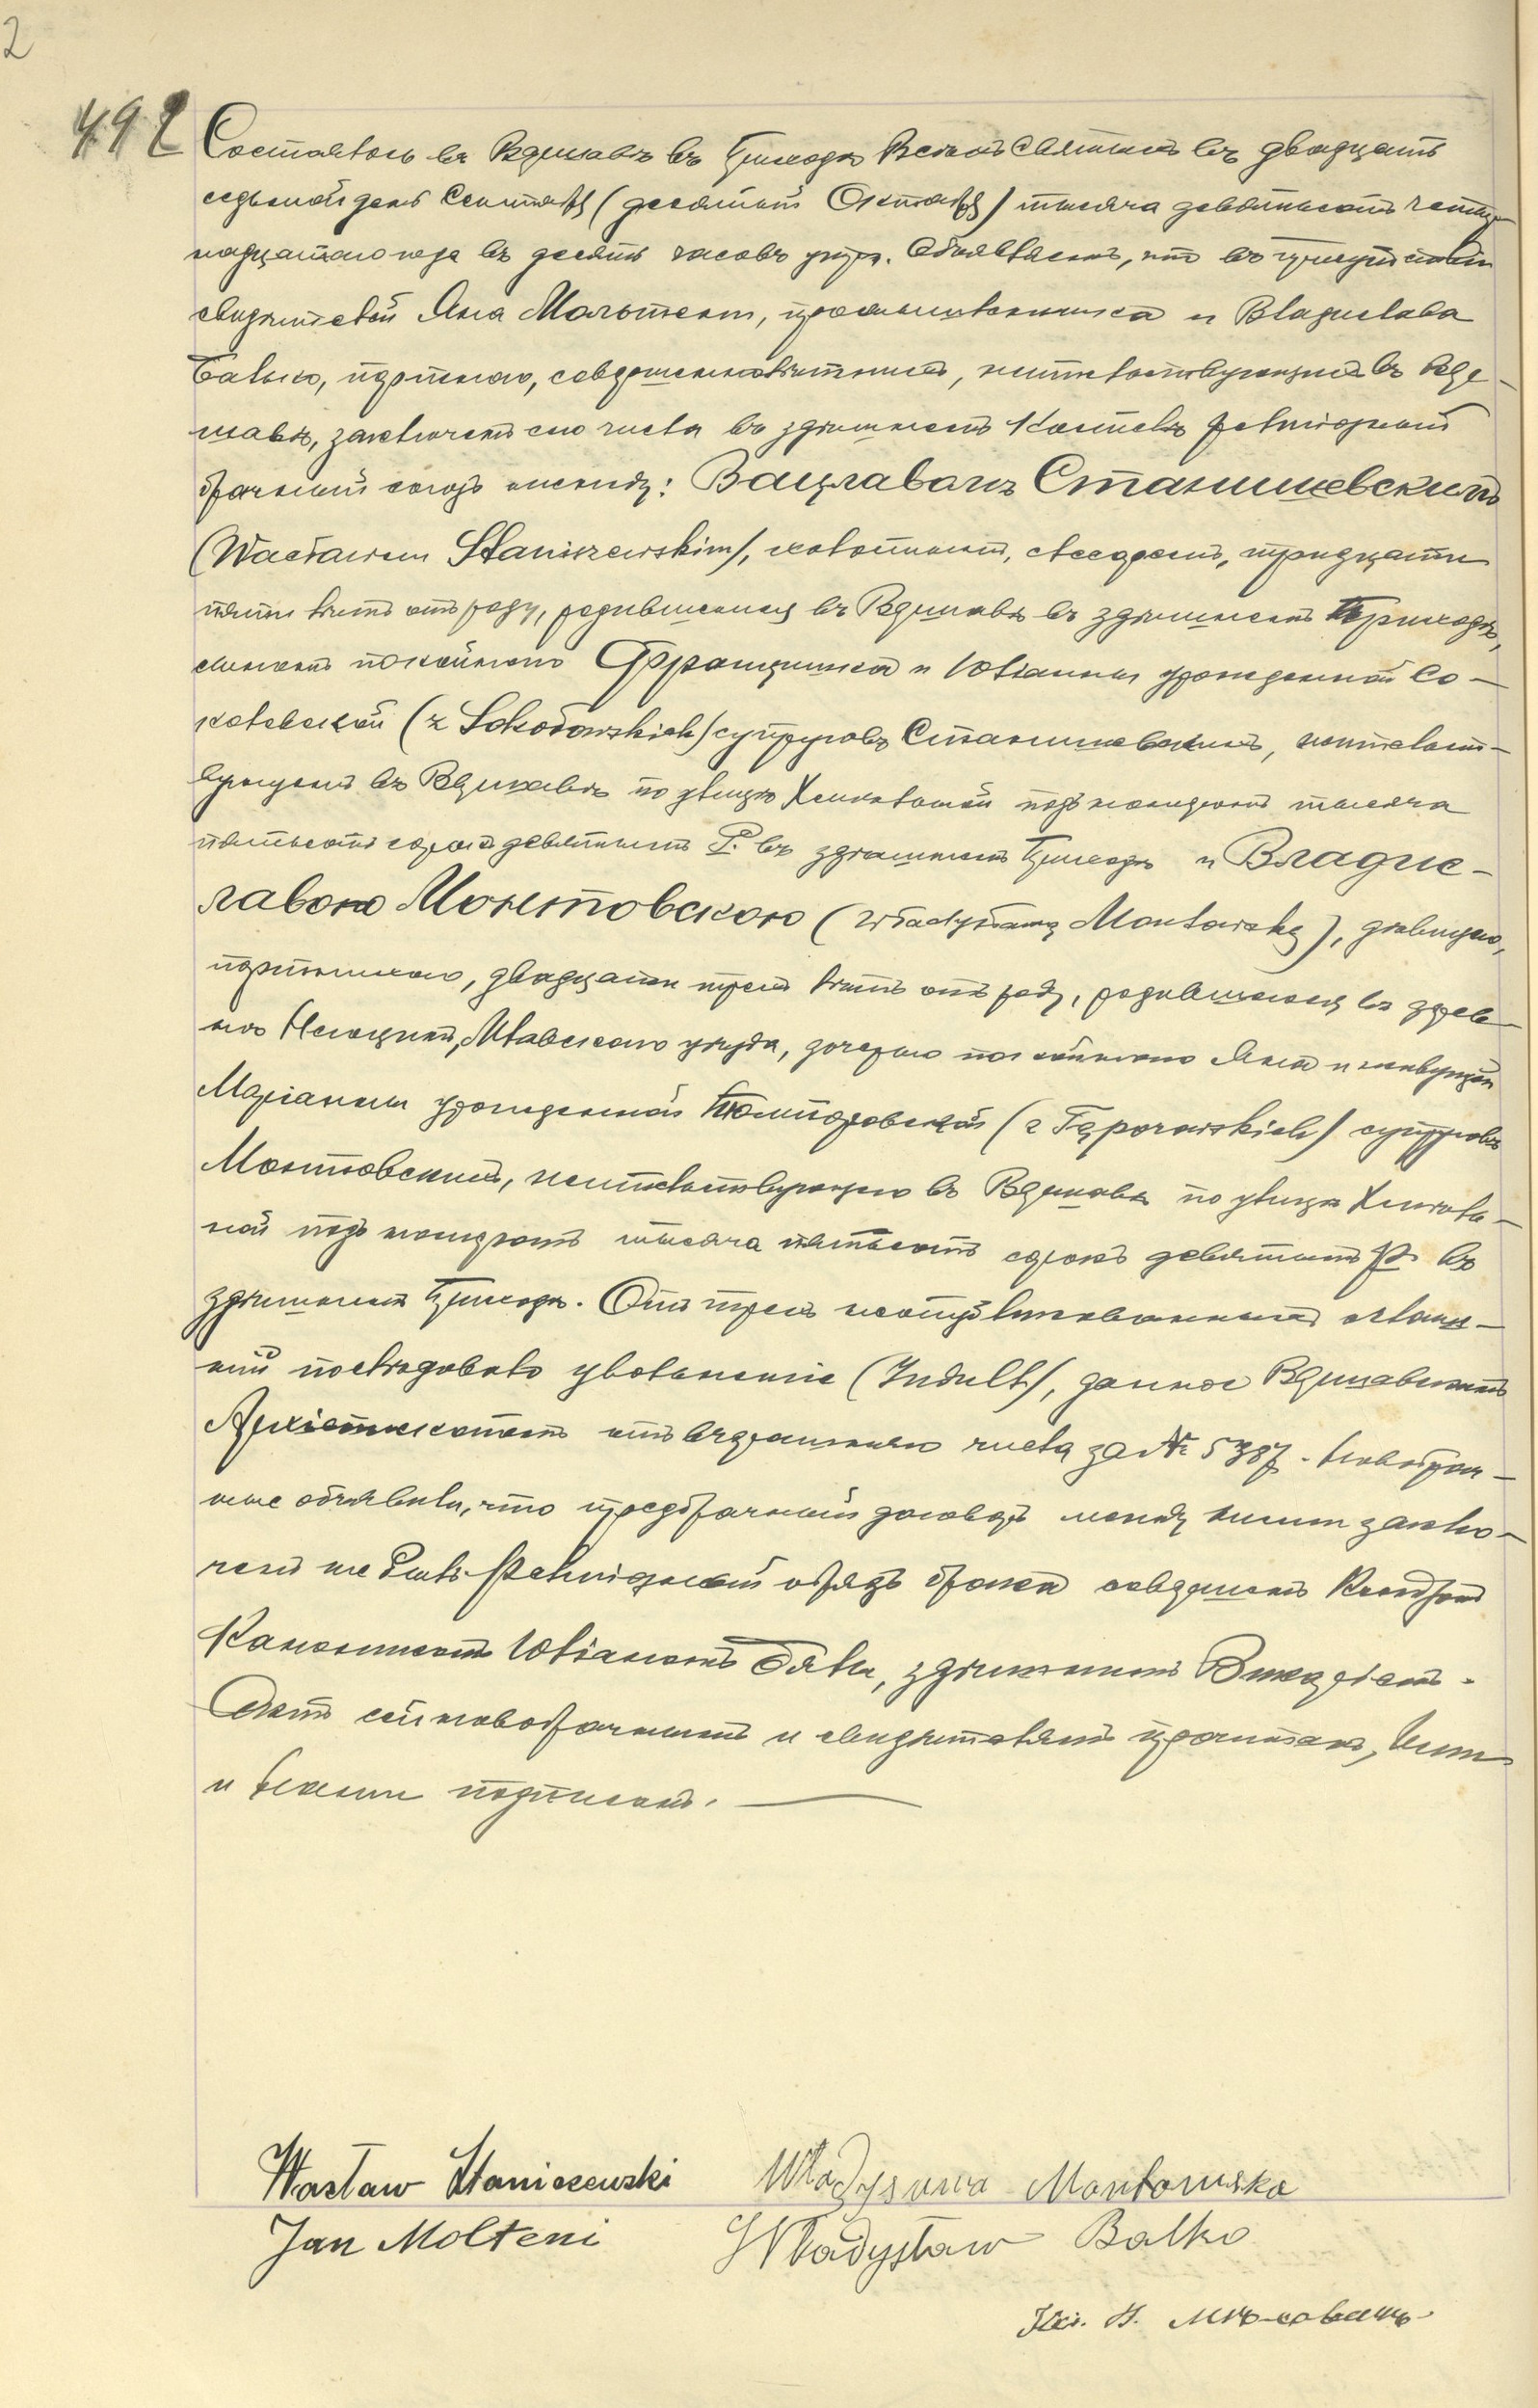 2
492
Состоялось въ Варшавѣ въ Приходѣ Всѣхъ Святыхъ въ двадцать
седьмой день Сентября (десятый Октября) тысяча девятьсотъ четыр-
надцатаго года въ десять часовъ утра. Объявляемъ, что въ присутствіи
свидѣтелей Яна Мольтени, промышленника и Владислава
Балько, портного, совершеннолѣтнихъ, жительствующихъ въ Вар-
шавѣ, заключенъ сего числа въ здѣшнемъ Костелѣ религіозный
брачный союзъ между: Вацлавомъ Станишевскимъ
(Wacławem Staniszewskim), холостымъ, слесаремъ, тридцати
пяти лѣтъ отъ роду, родившемся въ Варшавѣ въ здѣшнемъ Приходѣ,
сыномъ покойнаго Францишка и Юліанны урожденной Со-
коловской (z Sokołowskich) супруговъ Станишевскихъ, жительст-
вующимъ въ Варшавѣ по улицѣ Хмѣльной подъ номеромъ тысяча
пятьсотъ сорокъ девятымъ P. въ здѣшнемъ Приходѣ и Владис-
лавою Монтовскою (Władysławą Montowską), дѣвицею,
портнихою, двадцати трехъ лѣтъ отъ роду, родившеюся въ дерев-
нѣ Млавскаго уѣзда, дочерью покойнаго Яна и живущей
Маріанны урожденной (z Tąporowskich) супруговъ
Монтовскихъ, жительствующею въ Варшавѣ по улицѣ Хмѣль-
ной подъ номеромъ тысяча пятьсотъ сорокъ девятымъ P. въ
здѣшнемъ Приходѣ. Отъ трехъ оглаше-
ній послѣдовало увольненіе (Indult), данное Варшавскимъ
Архіепископомъ отъ вчерашняго числа за № 5387. Новобрач-
ные объявили, что предбрачный договоръ между ними заклю-
ченъ не былъ. Религіозный обрядъ брака совершенъ Ксендзомъ
Каноникомъ Юліаномъ Бялы, здѣшнимъ Викаріемъ.
Актъ сей новобрачнымъ и свидѣтелямъ прочитанъ, Ими
и Нами подписанъ.
Wacław Staniszewski Władysawa Montowska
Jan Molteni Władysław Balko
Кс.